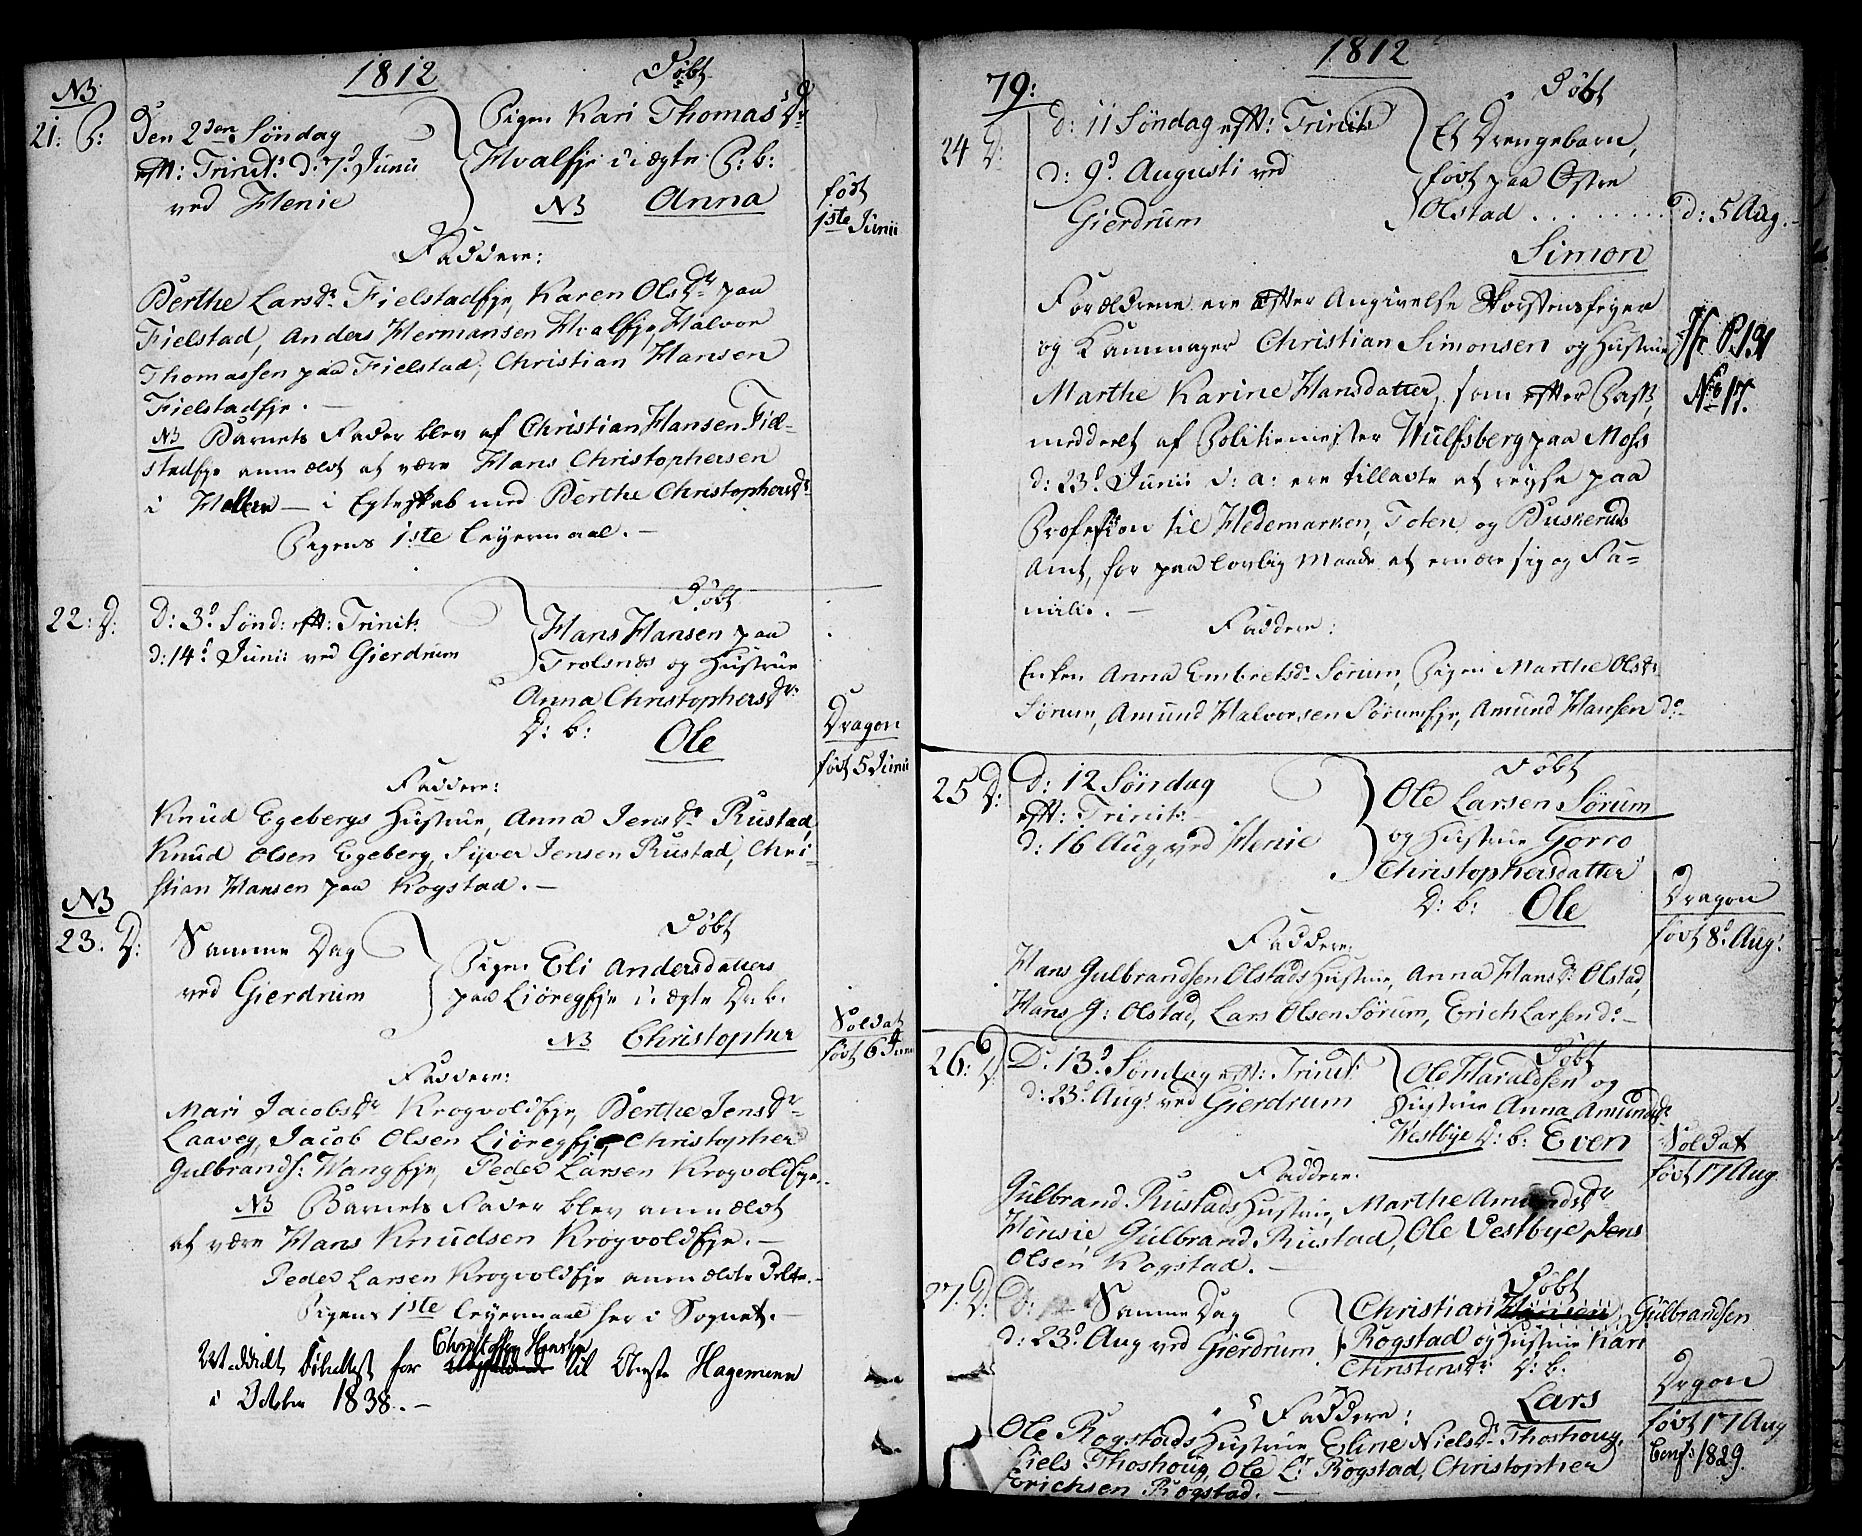 1812
NB
21: P:
Døbt
Den 2den Søndag
eft: Trinit: d: 7d Junii
ved Henie
Pigen Kari Thomas Dr
Hvalseje i ægte P: b:
NB Anna
født
1ste Junii
Faddere:
Berthe Lars Dr Fielstadeje, Karen Ols Dr paa
Fielstad, Anders Hermansen Hvaleje, Halvor
Thomassen paa Fielstad, Christian Hansen
Fielstadeje. —
NB Barnets Fader blev af Christian Hansen Fiel-
stadeje anmældt at være Hans Christophersen
i — i Egteskab med Berthe Christophers Dr
Pigens 1ste Leyermaal. —
22: D:
Døbt
D: 3d Sønd: eft: Trinit:
d: 14d Junii ved Gierdrum
Hans Hansen paa
Trolsnæs og Hustrue
Anna Christophers Dr
D: b:
Ole
Dragon
født 5 Junii
Faddere:
Knud Egebergs Hustrue, Anna Jens Dr Rustad,
Knud Olsen Egeberg, Syver Jensen Rustad, Chri-
stian Hansen paa Rogstad. —
NB
23. D:
Døbt
Samme Dag
ved Gierdrum
Pigen Eli Andersdatters
paa Liøregeje i ægte Dr: b.
NB Christopher
Soldat
født 6 Junii
Faddere:
Mari Jacobs Dr Krogvoldeje, Berthe Jens Dr
Laavey, Jacob Olsen Liøregeje, Christopher
Gulbrands: Wangeje, Peder Larsen Krogvoldeje.
NB Barnets Fader blev anmældt
at være Hans Knudsen Krogvoldeje. —
Peder Larsen Krogvoldeje anmældte Dette. —
Pigens 1ste Leyermaal her i Sognet. —
Døbeattest for
til Hagemann
i October 1838. —
79:
1812
24 D:
Døbt
d: 11 Søndag eft: Trinit:
d: 9d Augusti ved
Gierdrum
Et Drengebarn,
født paa Østre
Olstad . . . . . . . .
d: 5 Aug. —
Simon
Forældrene ere efter Angivelse Skorsteensfejer
og Kammager Christian Simonsen og Hustrue
Marthe Karine Hansdatter, som efter Pass,
meddeelt af Politiemester Wulfsberg paa Moss
d: 23d Junii d: a: ere tilladte at rejse paa
Profession til Hedemarken, Toten og Buskeruds
Amt, for paa lovlig Maade at ernære sig og Fa-
milie. —
Jfr P. 191
No 17.
Faddere:
Enken Anna Embrets Dr Sørum, Pigen Marthe Ols Dr
Sørum, Amund Halvorsen Sørumeje, Amund Hansen do —
25 D:
Døbt
D: 12 Søndag
eft: Trinit:
d: 16 Aug, ved Henie
Ole Larsen Sørum
og Hustrue Gorro
Christophersdatter
D: b: Ole
Dragon
født 8d Aug.
Faddere:
Hans Gulbrandsen Olstads Hustrue, Anna Hans Dr Olstad,
Hans G: Olstad, Lars Olsen Sørum, Erich Larsen do —
26: D
Døbt
D: 13d Søndag eft: Trinit:
d: 23d Aug: ved Gierdrum
Ole Haraldsen og
Hustrue Anna Amunds Dr
Westbye D: b: Even
Soldat
født 17 Aug
Faddere:
Gulbrand Rustads Hustrue, Marthe Amunds Dr
Hønsie Gulbrand Rustad, Ole Vestbye, Jens
Olsen Rogstad. —
27. D:
Døbt
D: Samme Dag
d: 23d Aug ved Gierdrum
Christian Hansen Gulbrandsen
Rogstad og Hustrue Kari
Christens Dr D: b:
Lars
Dragon
født 17 Aug
Conf: 1829.
Faddere:
Ole Rogstads Hustrue Eline Niels Dr Thoshoug,
Niels Thoshoug, Ole Lr Rogstad, Christopher
Erichsen Rogstad. —